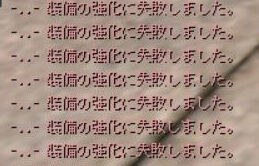 -..- 装備の強化に失敗しました。
-..- 装備の強化に失敗しました。
-..- 装備の強化に失敗しました。
-..- 装備の強化に失敗しました。
-..- 装備の強化に失敗しました。
-..- 装備の強化に失敗しました。
-..- 装備の強化に失敗しました。